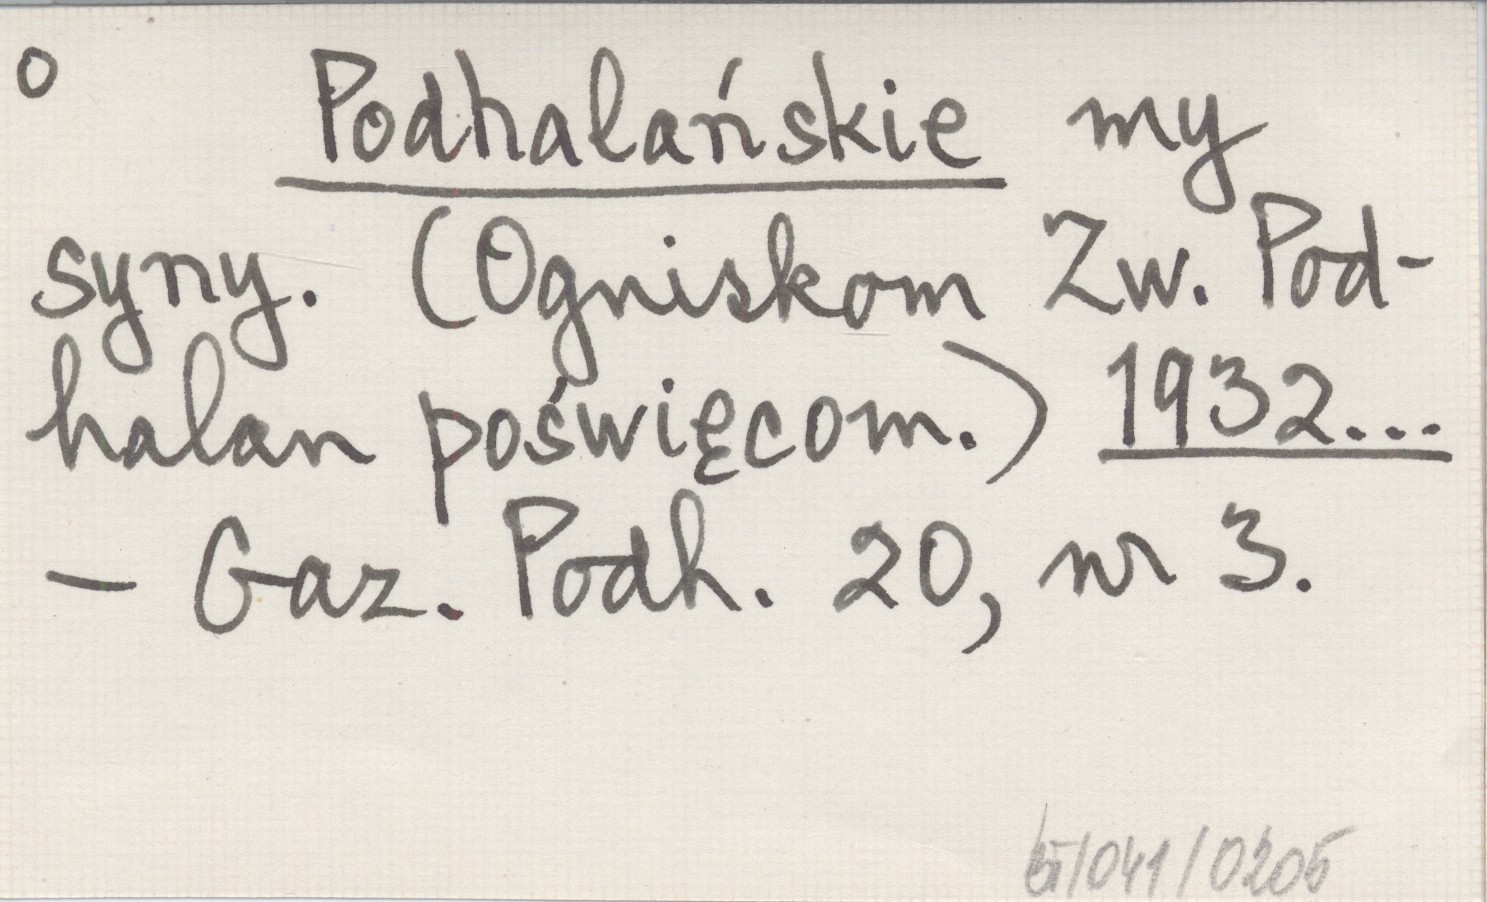 o Podhalańskie my
syny. (Ogniskom Zw. Pod-
halan poświęcom.) 1932...
— Gaz. Podh. 20, nr 3.
/041/0205